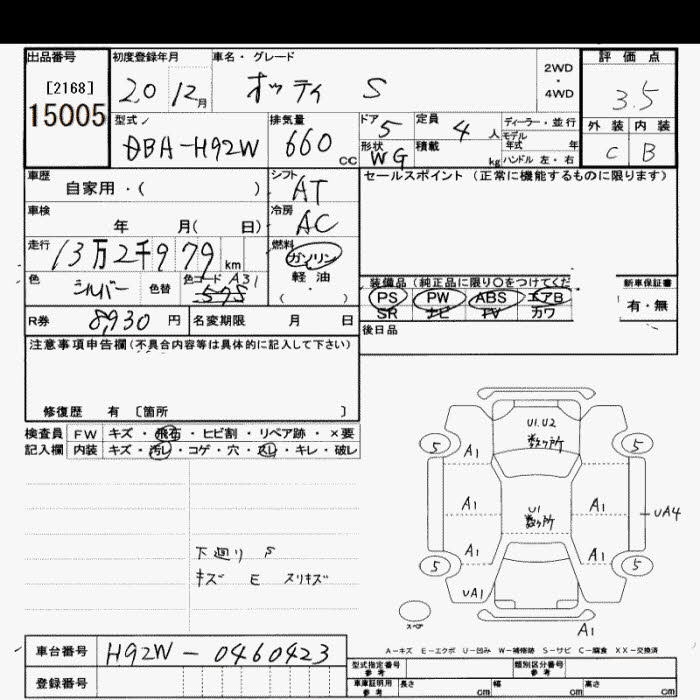 出品番号 初度登録年月 車名・グレード 評価点
[2168] 20 12月 オッティ S 2WD・4WD 3.5
15005
型式 排気量 ドア 5 定員 4人 ディーラー・並行 外装 内装
DBA-H92W 660cc 形状 WG 積載 kg モデル年式 年 ハンドル 左・右 C B
車歴 シフト セールスポイント (正常に機能するものに限ります)
自家用・( ) AT
車検 冷房
年 月( 日) AC
走行 13万2千979km 燃料 ガソリン
色 シルバー 色替 色コード A31 軽油 装備品 (純正品に限り○をつけてくだ 新車保証書
( ) PS PW ABS エアB 有・無
R券 8,930円 名変期限 月 日 SR ナビ TV カワ
後日品
注意事項申告欄(不具合内容等は具体的に記入して下さい)
修復歴 有 〔箇所 〕
検査員 FW キズ・飛石・ヒビ割・リペア跡・×要
記入欄 内装 キズ・汚レ・コゲ・穴・スレ・キレ・破レ
U1.U2
数ヶ所
5 A1 5
A1 U1 A1 UA4
数ヶ所
A1 A1
5 5
UA1
スペア A1
下廻り S
キズ E スリキズ
A-キズ E-エクボ U-凹み W-補修跡 S-サビ C-腐食 XX-交換済
車台番号 H92W-0460423 型式指定番号 参考 類別区分番号 参考
登録番号 車庫証明用 参考 長さ cm 幅 cm 高さ cm